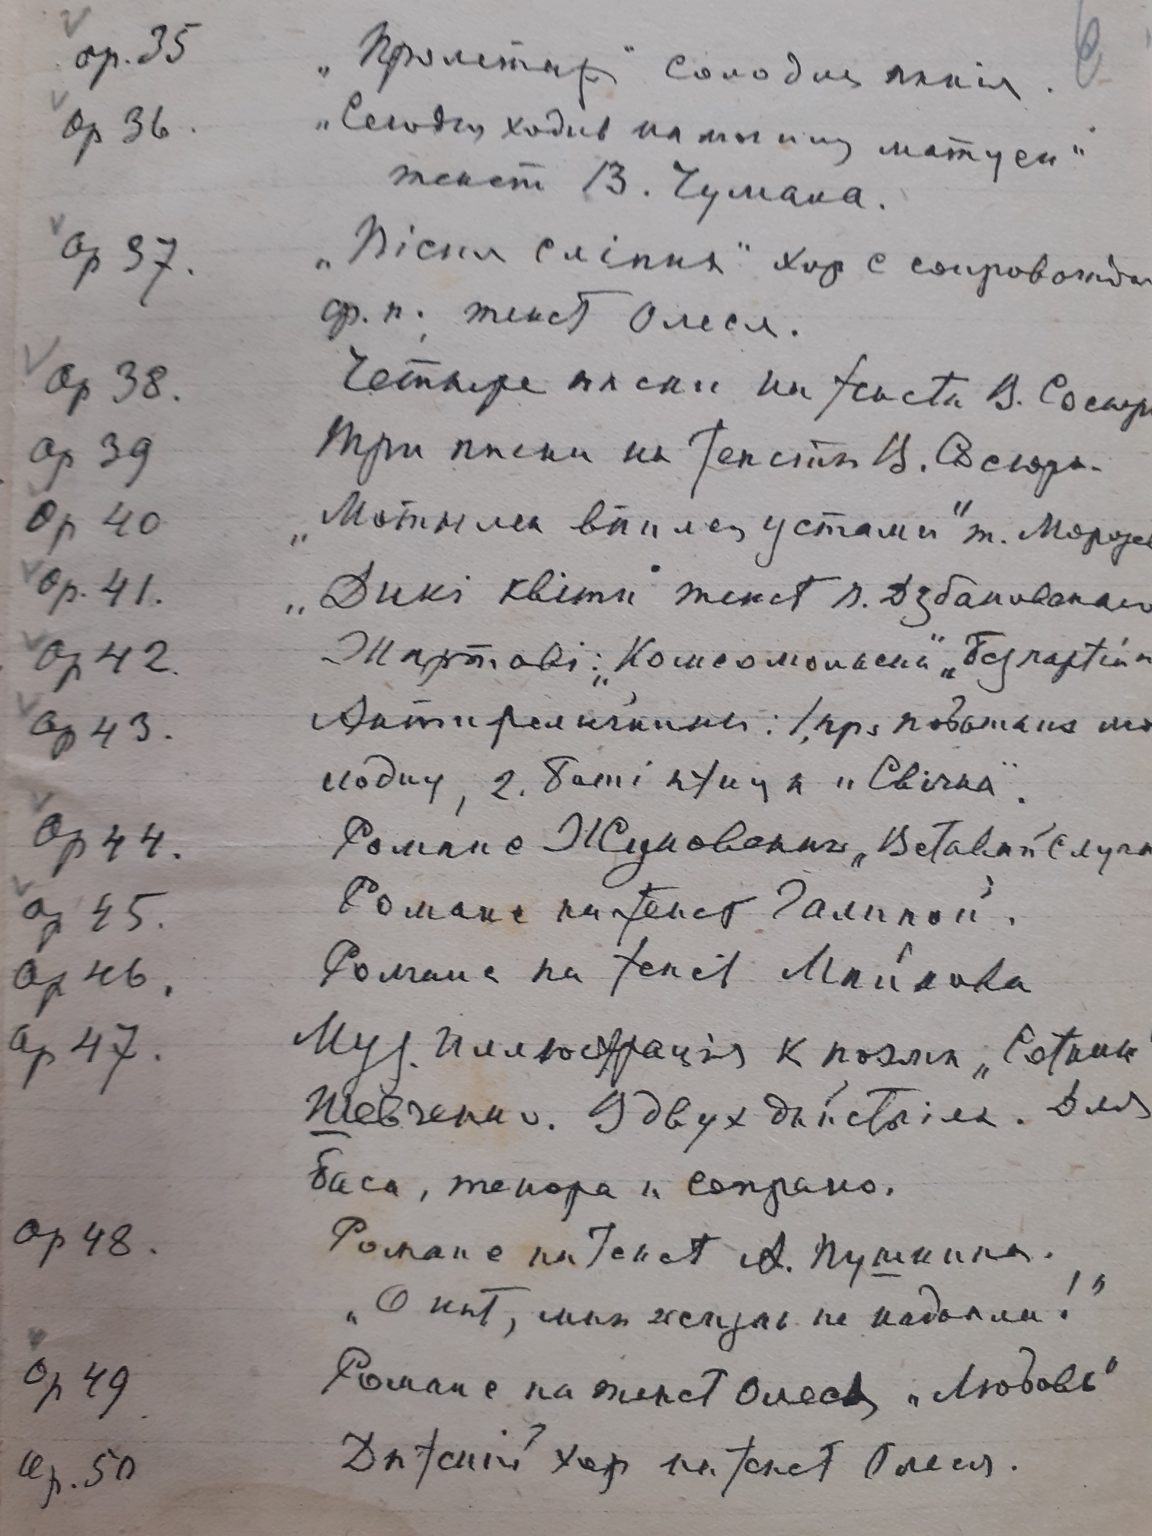 ор. 35 „Пролетар" солодия пения.
Ор 36. „Сегодня ходив на могилу матусі"
текст В. Чумака.
Ор 37. „Пісня сліпих" хор с сопровожден
ф.п., текст Олеся.
Ор 38. Четыре пѣсни на текстъ В. Сосюры
Ор 39 Три пѣсни на текстъ В. Сосюры.
Ор 40 „Мотылек впился устами" т. Морозов
Ор. 41. „Дикі квіти" текст П. Дзбановского
Ор 42. Жартові: „Комсомольські", „Безпартійн
Ор 43. Антирелигийны: 1, про мо
лодицу, 2. Баті „Свічка".
Ор 44. Романс Жуковского „Вставай
Ор 45. Романс на текст Галиной.
Ор 46. Романс на текст Майкова
Ор 47. Муз. иллюстрація к поэмѣ „Сотник"
Шевченко. У двух дѣйствіях. Для
баса, тенора и сопрано.
Ор 48. Романс на текст А. Пушкина.
„О нѣт, мнѣ жизнь не надоѣла!"
Ор 49 Романс на текст Олеся „Любовь"
Ор. 50 Дѣтскій хор на текст Олеся.